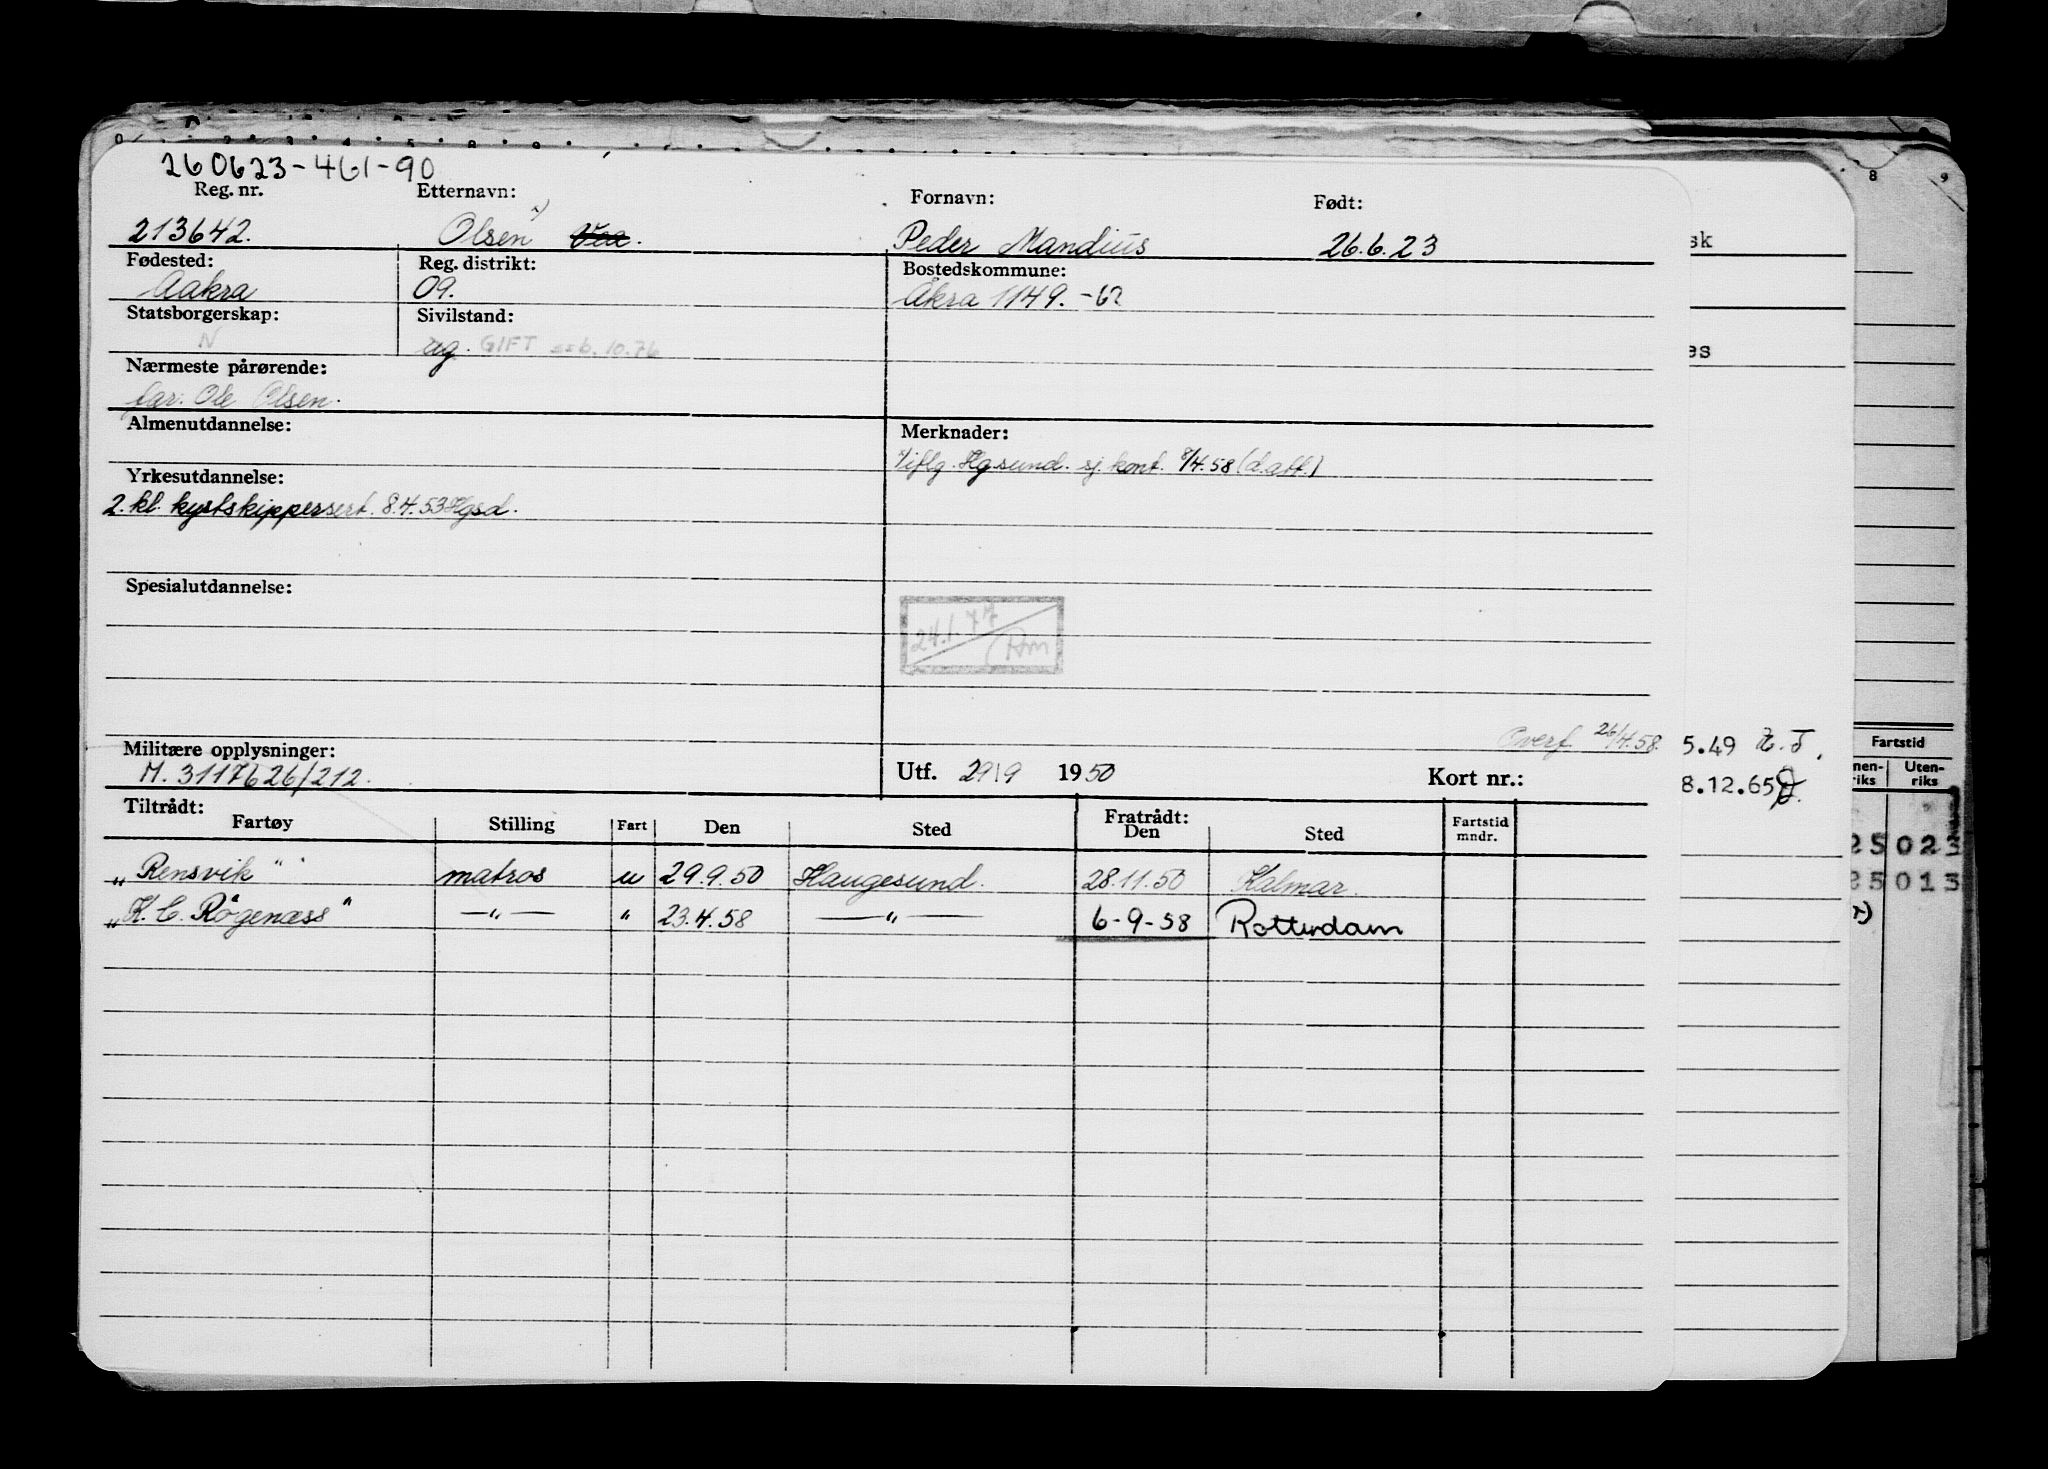 260623-461-90
Reg. nr. Etternavn: Fornavn: Født:
213642. Olsen x) Vea. Peder Mandius 26.6.23
Fødested: Reg. distrikt: Bostedskommune:
Aakra 09. Åkra 1149. -62
Statsborgerskap: Sivilstand:
N ug. GIFT ssb. 10.76
Nærmeste pårørende:
far. Ole Olsen.
Almenutdannelse: Merknader:
x/ iflg. Hgsund. sj. kont. 8/4.58 (d.att.)
Yrkesutdannelse:
2. kl. kystskippersert. 8.4.53 Hgsd.
Spesialutdannelse:
24.1.77
Overf. 26/4.58.
5.49
Militære opplysninger: Utf. 29/9 1950 Kort nr.:
M. 3117626/212.
8.12.65
Tiltrådt: Fratrådt:
Fartøy Stilling Fart Den Sted Den Sted Fartstid mndr.
„Rensvik" matros u 29.9.50 Haugesund. 28.11.50 Kalmar.
„K. C. Rogenæss" —"— " 23.4.58 —"— 6-9-58 Rotterdam
sk
es
8 9
Fartstid
nen-riks Uten-riks
25 023
25 013